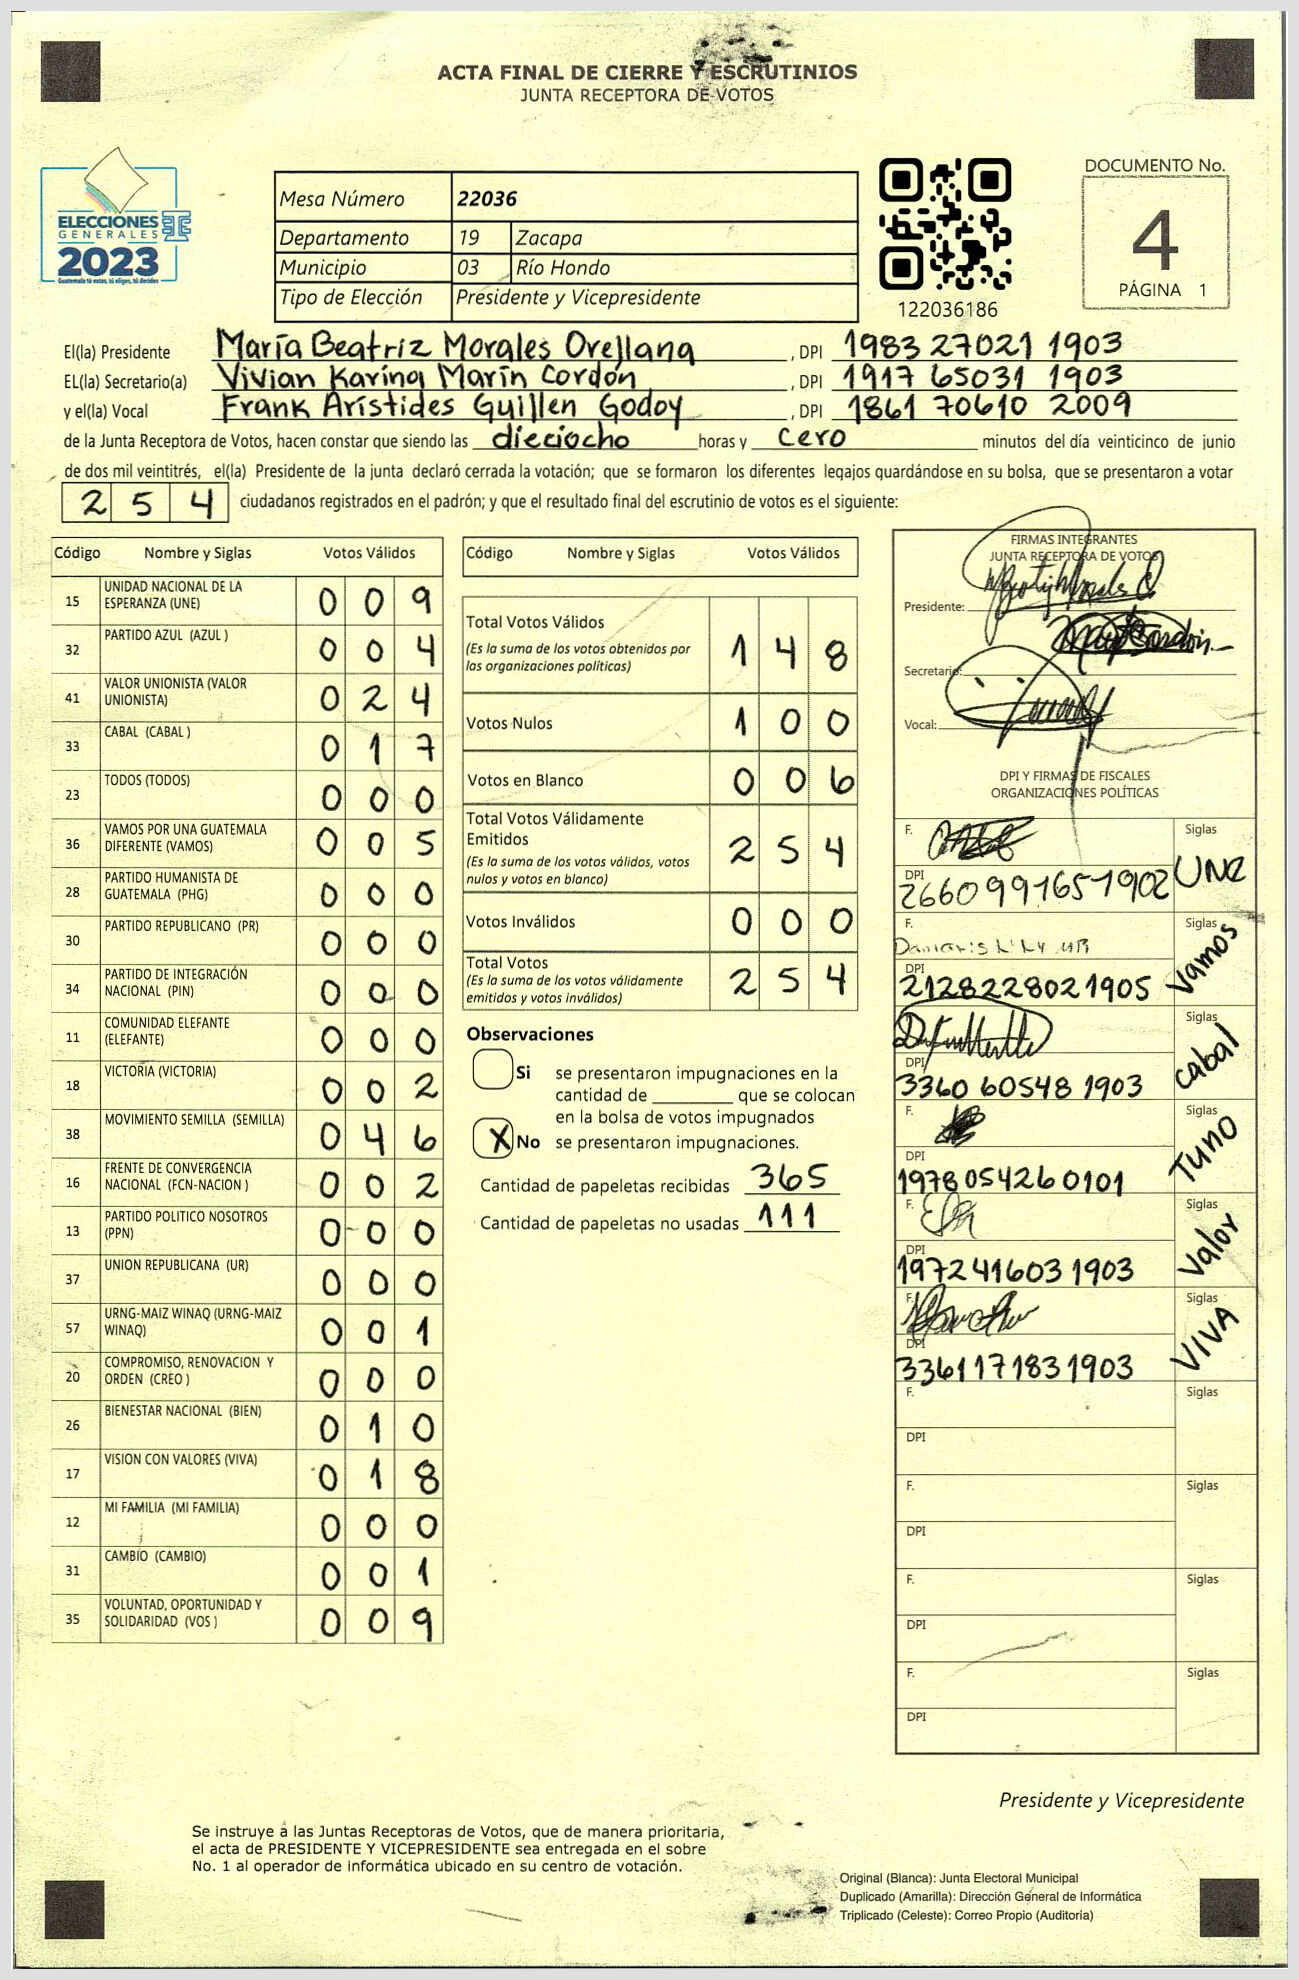 ACTA FINAL DE CIERRE Y ESCRUTINIOS
JUNTA RECEPTORA DE VOTOS
ELECCIONES
GENERALES
2023
Guatemala tú votas, tú eliges, tú decides
Mesa Número 22036
Departamento 19 Zacapa
Municipio 03 Río Hondo
Tipo de Elección Presidente y Vicepresidente
122036186
DOCUMENTO No.
4
PÁGINA 1
El(la) Presidente María Beatriz Morales Orellana, DPI 1983 27021 1903
EL(la) Secretario(a) Vivian Karina Marín Cordón, DPI 1917 65031 1903
y el(la) Vocal Frank Arístides Guillen Godoy, DPI 1861 70610 2009
de la Junta Receptora de Votos, hacen constar que siendo las dieciocho horas y cero minutos del día veinticinco de junio
de dos mil veintitrés, el(la) Presidente de la junta declaró cerrada la votación; que se formaron los diferentes legajos guardándose en su bolsa, que se presentaron a votar
254 ciudadanos registrados en el padrón; y que el resultado final del escrutinio de votos es el siguiente:
Código Nombre y Siglas Votos Válidos
15 UNIDAD NACIONAL DE LA ESPERANZA (UNE) 0 0 9
32 PARTIDO AZUL (AZUL ) 0 0 4
41 VALOR UNIONISTA (VALOR UNIONISTA) 0 2 4
33 CABAL (CABAL ) 0 1 7
23 TODOS (TODOS) 0 0 0
36 VAMOS POR UNA GUATEMALA DIFERENTE (VAMOS) 0 0 5
28 PARTIDO HUMANISTA DE GUATEMALA (PHG) 0 0 0
30 PARTIDO REPUBLICANO (PR) 0 0 0
34 PARTIDO DE INTEGRACIÓN NACIONAL (PIN) 0 0 0
11 COMUNIDAD ELEFANTE (ELEFANTE) 0 0 0
18 VICTORIA (VICTORIA) 0 0 2
38 MOVIMIENTO SEMILLA (SEMILLA) 0 4 6
16 FRENTE DE CONVERGENCIA NACIONAL (FCN-NACION ) 0 0 2
13 PARTIDO POLITICO NOSOTROS (PPN) 0 0 0
37 UNION REPUBLICANA (UR) 0 0 0
57 URNG-MAIZ WINAQ (URNG-MAIZ WINAQ) 0 0 1
20 COMPROMISO, RENOVACION Y ORDEN (CREO ) 0 0 0
26 BIENESTAR NACIONAL (BIEN) 0 1 0
17 VISION CON VALORES (VIVA) 0 1 8
12 MI FAMILIA (MI FAMILIA) 0 0 0
31 CAMBIO (CAMBIO) 0 0 1
35 VOLUNTAD, OPORTUNIDAD Y SOLIDARIDAD (VOS ) 0 0 9
Código Nombre y Siglas Votos Válidos
Total Votos Válidos 1 4 8
(Es la suma de los votos obtenidos por
las organizaciones políticas)
Votos Nulos 1 0 0
Votos en Blanco 0 0 6
Total Votos Válidamente
Emitidos 2 5 4
(Es la suma de los votos válidos, votos
nulos y votos en blanco)
Votos Inválidos 0 0 0
Total Votos 2 5 4
(Es la suma de los votos válidamente
emitidos y votos inválidos)
Observaciones
Si se presentaron impugnaciones en la
cantidad de ________ que se colocan
en la bolsa de votos impugnados
X No se presentaron impugnaciones.
Cantidad de papeletas recibidas 365
Cantidad de papeletas no usadas 111
FIRMAS INTEGRANTES
JUNTA RECEPTORA DE VOTOS
Presidente:
Secretario:
Vocal:
DPI Y FIRMAS DE FISCALES
ORGANIZACIONES POLÍTICAS
F. Siglas UNE
DPI 2660991651902
F. Siglas Vamos
DPI 2128228021905
F. Siglas cabal
DPI 3360 60548 1903
F. Siglas TUNO
DPI 1978054260101
F. Siglas Valor
DPI 1972416031903
F. Siglas VIVA
DPI 3361171831903
F. Siglas
DPI
F. Siglas
DPI
F. Siglas
DPI
F. Siglas
DPI
Presidente y Vicepresidente
Se instruye a las Juntas Receptoras de Votos, que de manera prioritaria,
el acta de PRESIDENTE Y VICEPRESIDENTE sea entregada en el sobre
No. 1 al operador de informática ubicado en su centro de votación.
Original (Blanca): Junta Electoral Municipal
Duplicado (Amarilla): Dirección General de Informática
Triplicado (Celeste): Correo Propio (Auditoría)